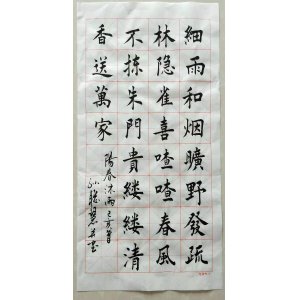 細雨和烟曠野發疏
林隐雀喜喳喳春風
不揀朱門貴縷縷清
香送萬家
陽春沐雨己亥首